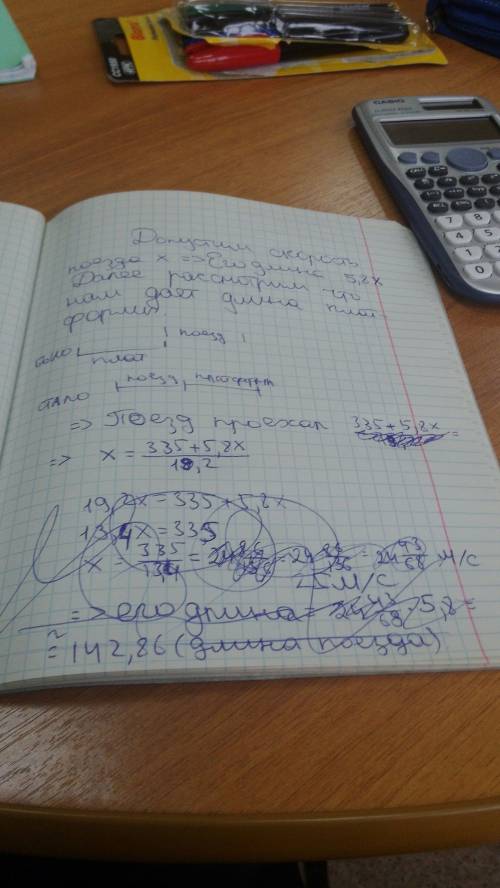 CASIO
Допустим скорость
поезда x => Его длина 5,8x
Далее рассмотрим что
нам дает длина плат-
формы.
было поезд
плат
стало поезд платформа
=> Поезд проехал 335+5,8x
=> x = 335+5,8x / 19,2
19,2x = 335+5,8x
13,4x = 335
x = 335 / 13,4 = = = 24 43/68 м/с
25 м/с
=> его длина = 24 43/68 · 5,8 =
≈ 142,86 (длина поезда)